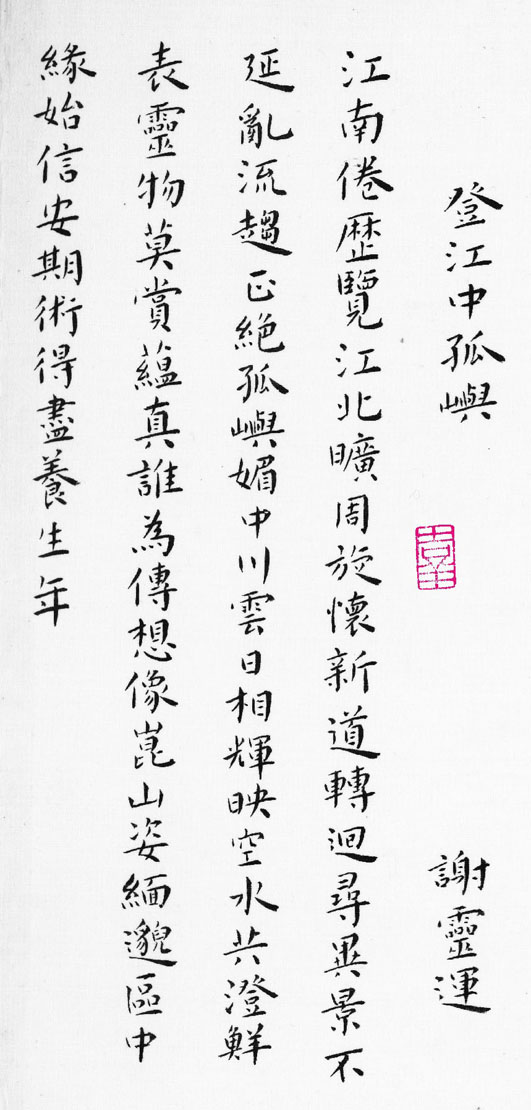 登江中孤嶼 謝靈運
江南倦歷覽江北曠周旋懷新道轉迥尋異景不
延亂流趨正絕孤嶼媚中川雲日相輝映空水共澄鮮
表靈物莫賞蘊真誰為傳想像崑山姿緬邈區中
緣始信安期術得盡養生年